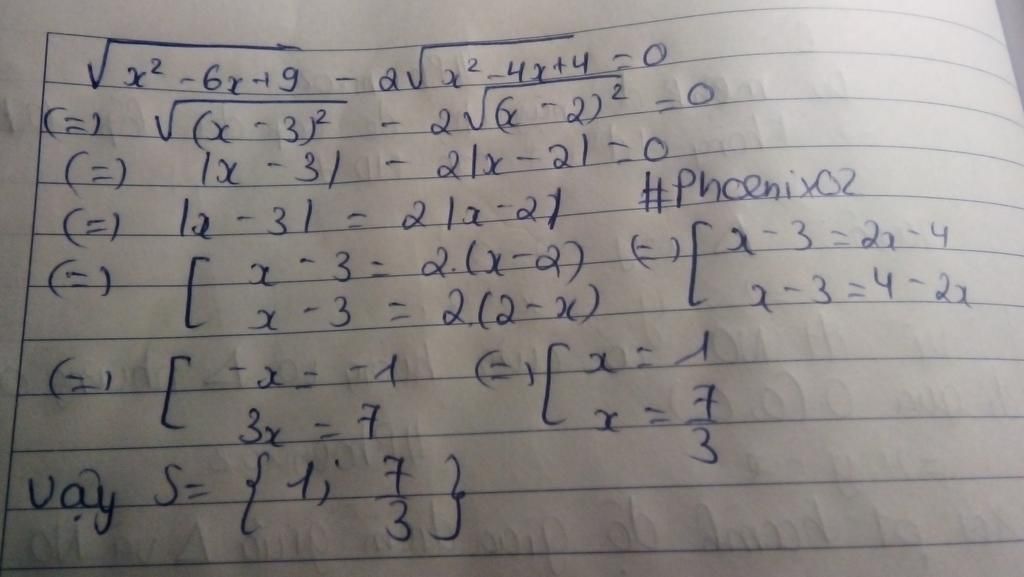 √(x² - 6x + 9) - 2√(x² - 4x + 4) = 0
(=) √((x - 3)²) - 2√((x - 2)²) = 0
(=) |x - 3| - 2|x - 2| = 0
(=) |x - 3| = 2|x - 2|
#Phoenix02
(=) [ x - 3 = 2.(x - 2)
x - 3 = 2(2 - x)
(=) [ x - 3 = 2x - 4
x - 3 = 4 - 2x
(=) [ -x = -1
3x = 7
(=) [ x = 1
x = 7/3
Vậy S = { 1; 7/3 }